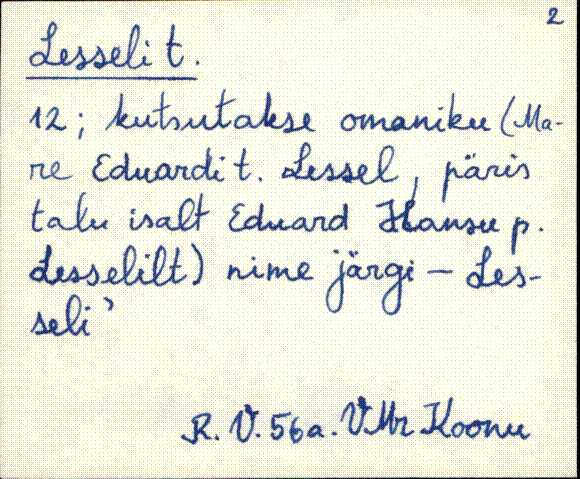 2
Lesseli t.
12; kutsutakse omaniku (Ma-
re Eduardi t. Lessel, päris
talu isalt Eduard Hansu p.
Lesselilt) nime järgi – Les-
seli'
R. V. 56a. VMr Koonu